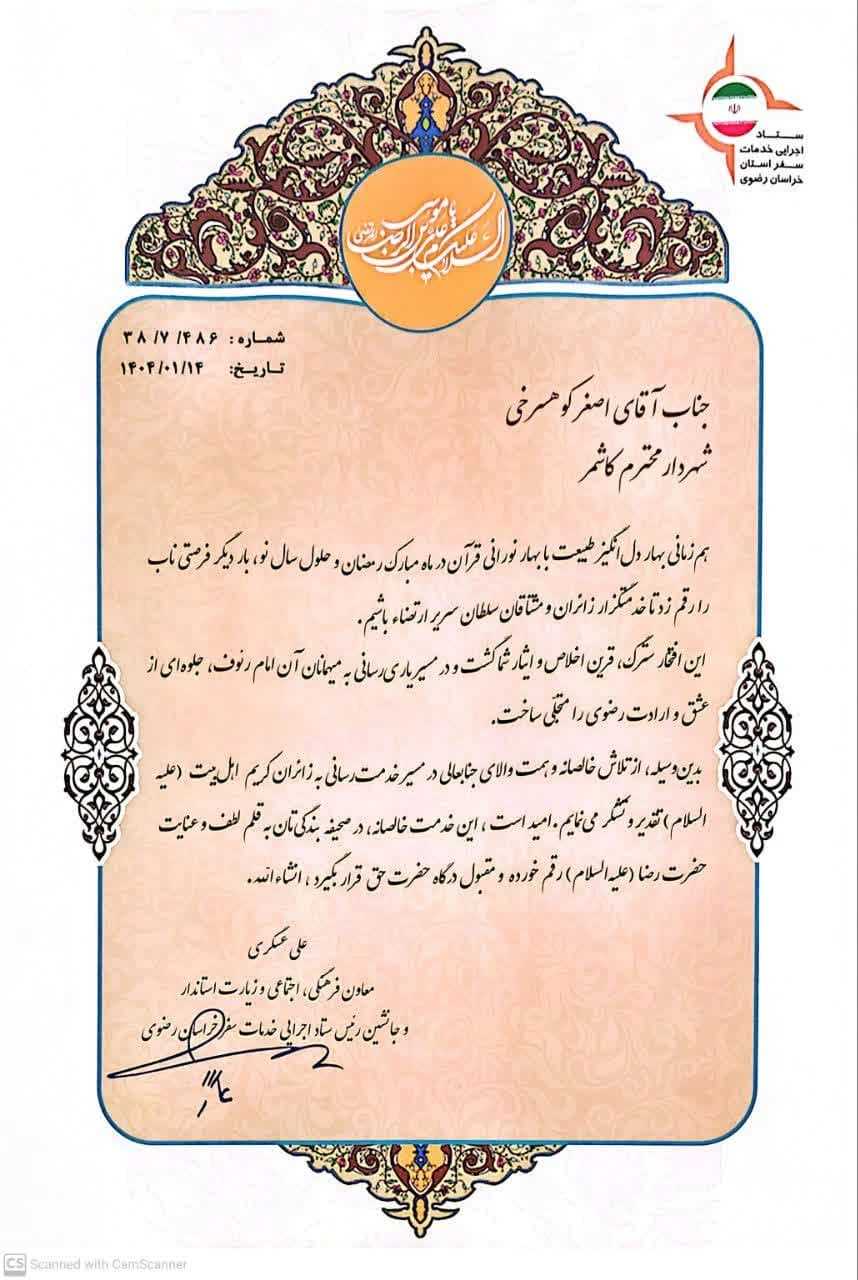 ستاد
اجرایی خدمات
سفر استان
خراسان رضوی
السلام علیک یا علی بن موسی الرضا المرتضی
شماره: ۳۸/۷/۴۸۶
تاریخ: ۱۴۰۴/۰۱/۱۴
جناب آقای اصغر کوهسرخی
شهردار محترم کاشمر
هم‌زمانی بهار دل‌انگیز طبیعت با بهار نورانی قرآن در ماه مبارک رمضان و حلول سال نو، بار دیگر فرصتی ناب
را رقم زد تا خدمتگزار زائران و مشتاقان سلطان سریر ارتضاء باشیم.
این افتخار سترگ، قرین اخلاص و ایثار شما گشت و در مسیر یاری‌رسانی به میهمانان آن امام رئوف، جلوه‌ای از
عشق و ارادت رضوی را متجلّی ساخت.
بدین‌وسیله، از تلاش خالصانه و همت والای جنابعالی در مسیر خدمت‌رسانی به زائران کریم اهل بیت (علیه
السلام) تقدیر و تشکر می‌نمایم. امید است، این خدمت خالصانه، در صحیفه بندگی‌تان به قلم لطف و عنایت
حضرت رضا (علیه‌السلام) رقم خورده و مقبول درگاه حضرت حق قرار بگیرد، انشاءالله.
علی عسکری
معاون فرهنگی، اجتماعی و زیارت استاندار
و جانشین رئیس ستاد اجرایی خدمات سفر خراسان رضوی
CS Scanned with CamScanner